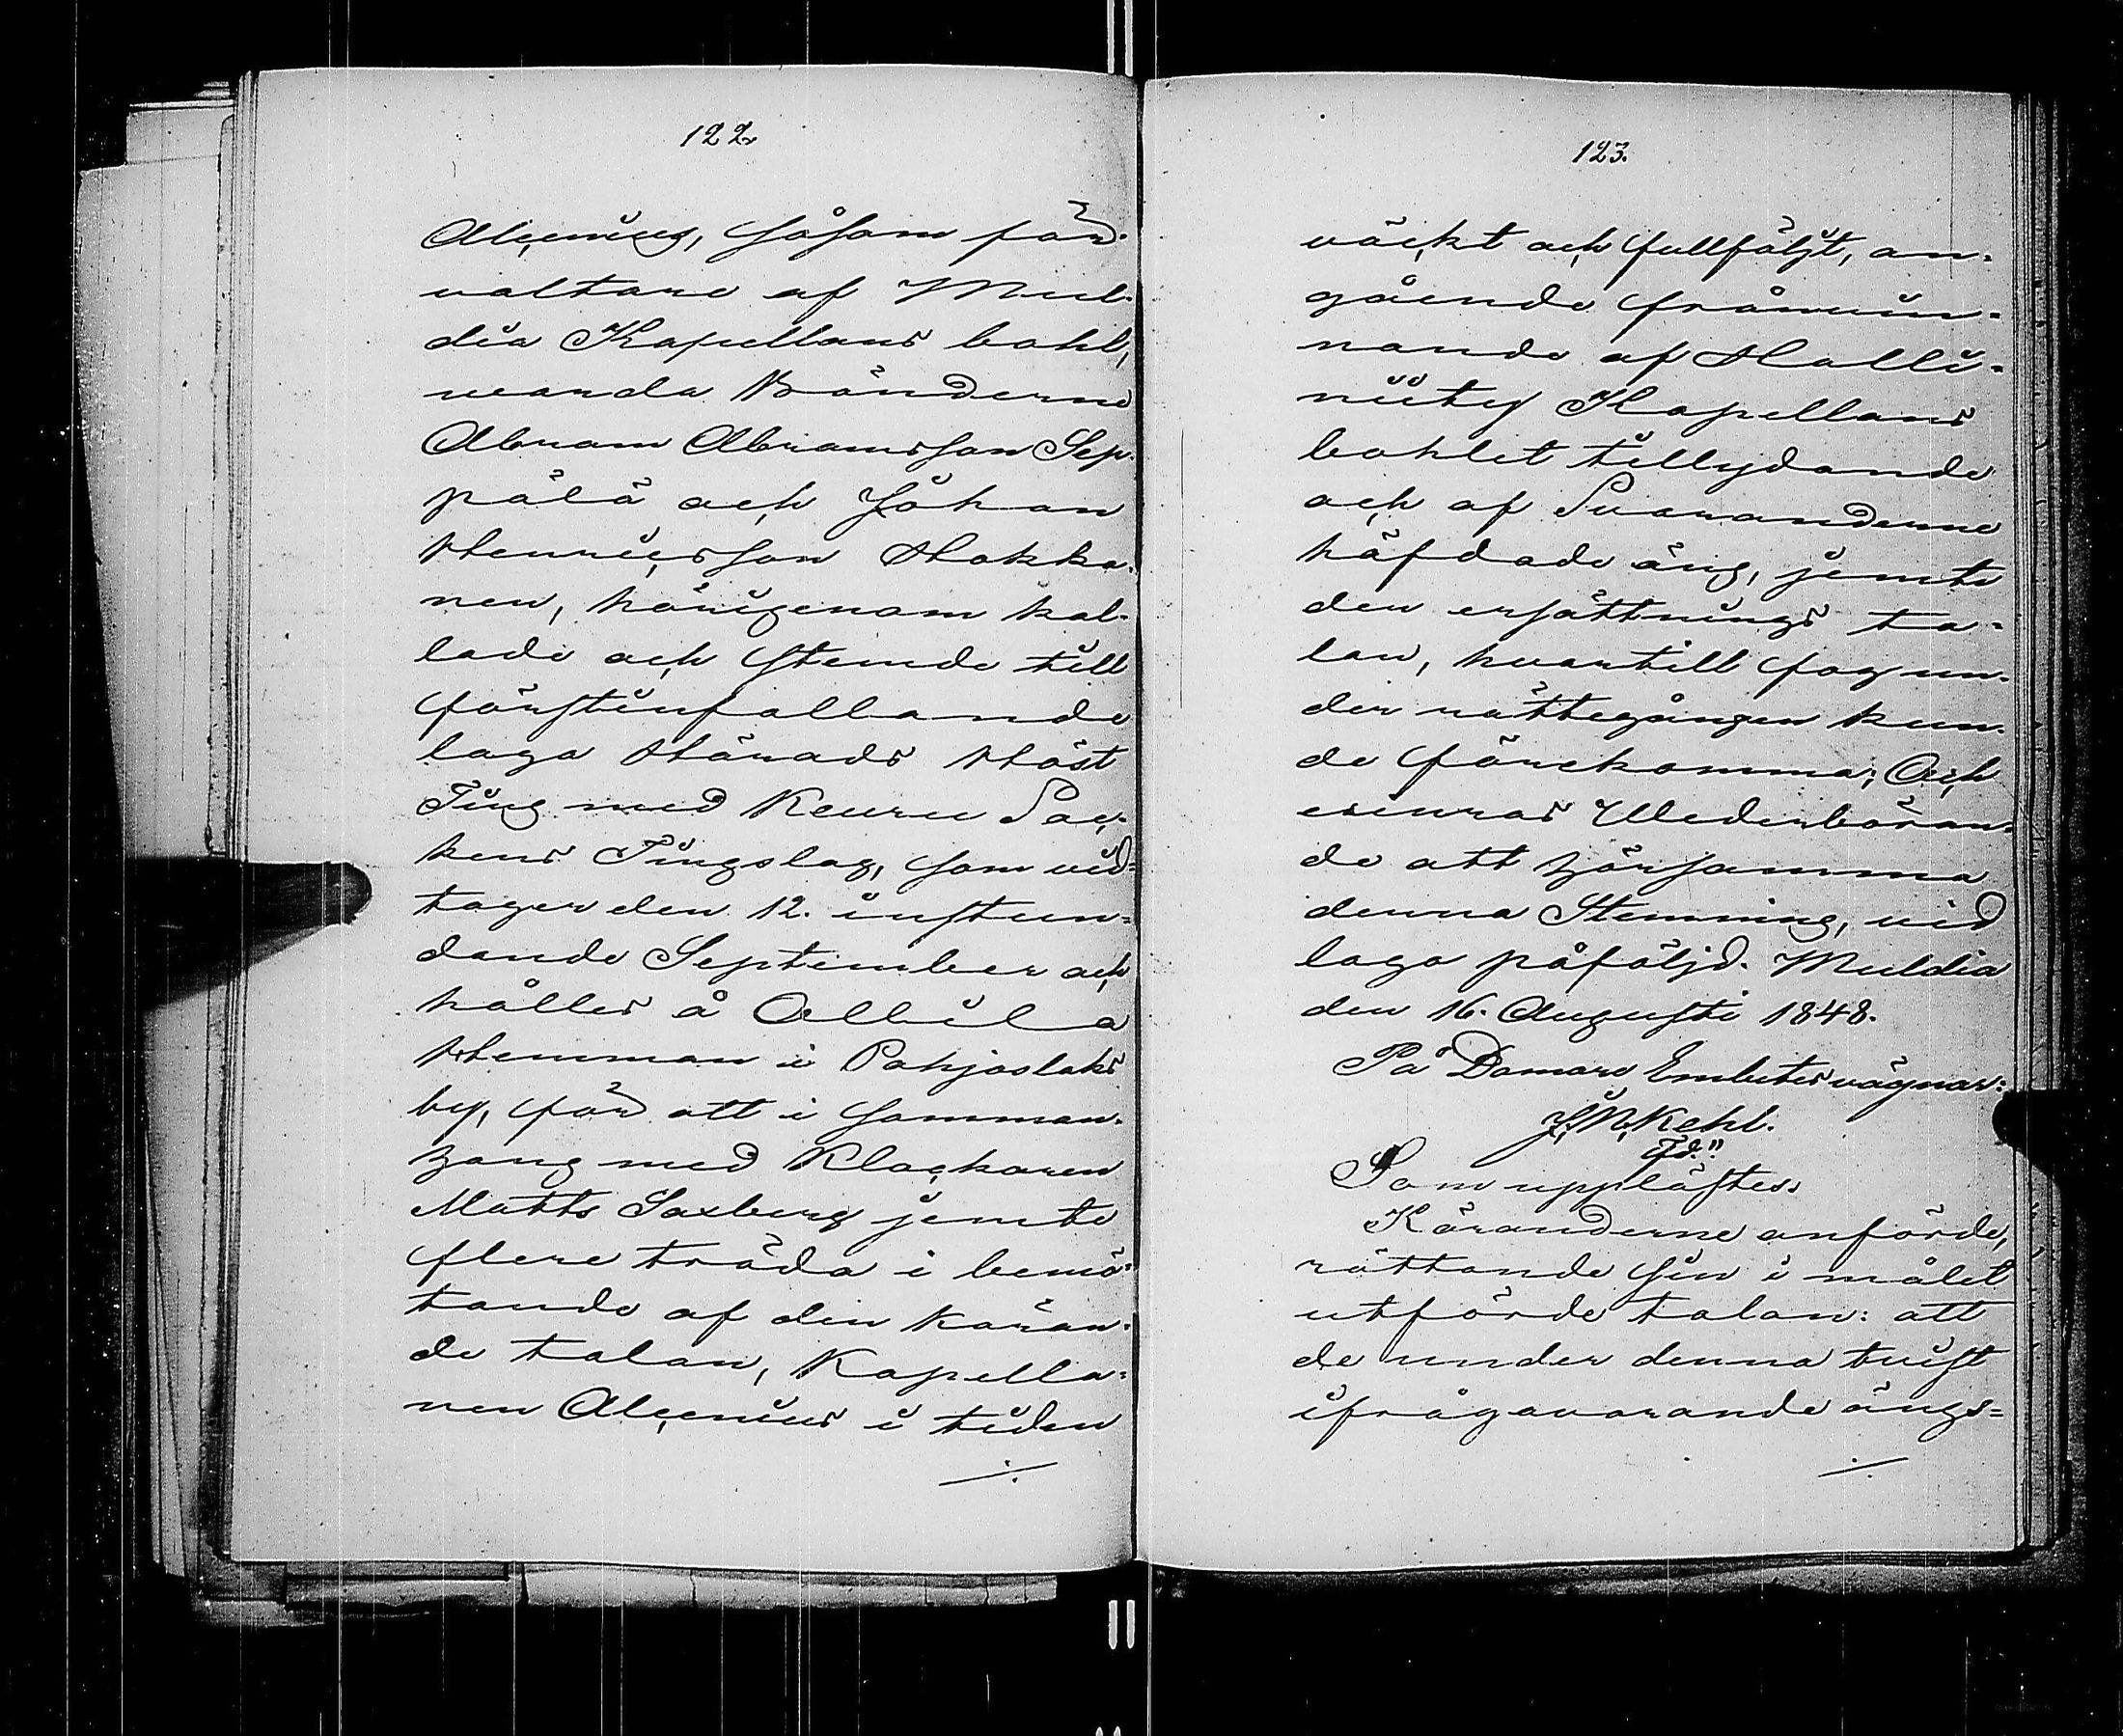 122
Alcenius, såsom för-
valtare af Mul-
dia Kapellans bohl,
Bönderne
Abram Abramsson Sep-
pälä och Johan
Henricsson Hokka-
nen, härigenom kal-
lade och stemde till
förstinfallande
laga Härads Höst
Ting med Keuru Soc-
kens Tingslag, som vid-
tager den 12. instun-
dande September och
hålles å Allbila
Hemman i Pohjoslaks
by, för att i samman-
hang med Klockaren
Matts Saxberg jemte
flere träda i bemö-
tande af den käran-
de talan, Kapella-
nen Alcenius i tiden
./.
123.
väckt och fullföljt, an-
gående fråvin-
nande af Halli-
niity Kapellans
bohlet tillydande
och af Svaranderne
häfdade äng, jemte
den ersättnings ta-
lan, hvartill fog un-
der rättegången kun-
de förekomma; Och
erinras Wederböran-
de att hörsamma
denna Stemning, vid
laga påföljd. Muldia
den 16. Augusti 1848.
På Domare Embetes vägnar:
J. N. Kehl.
Td."
Som upplästes.
Käranderne anförde,
rättande sin i målet
utförde talan: att
de under denna tvist
ifrågavarande ängs-
./.